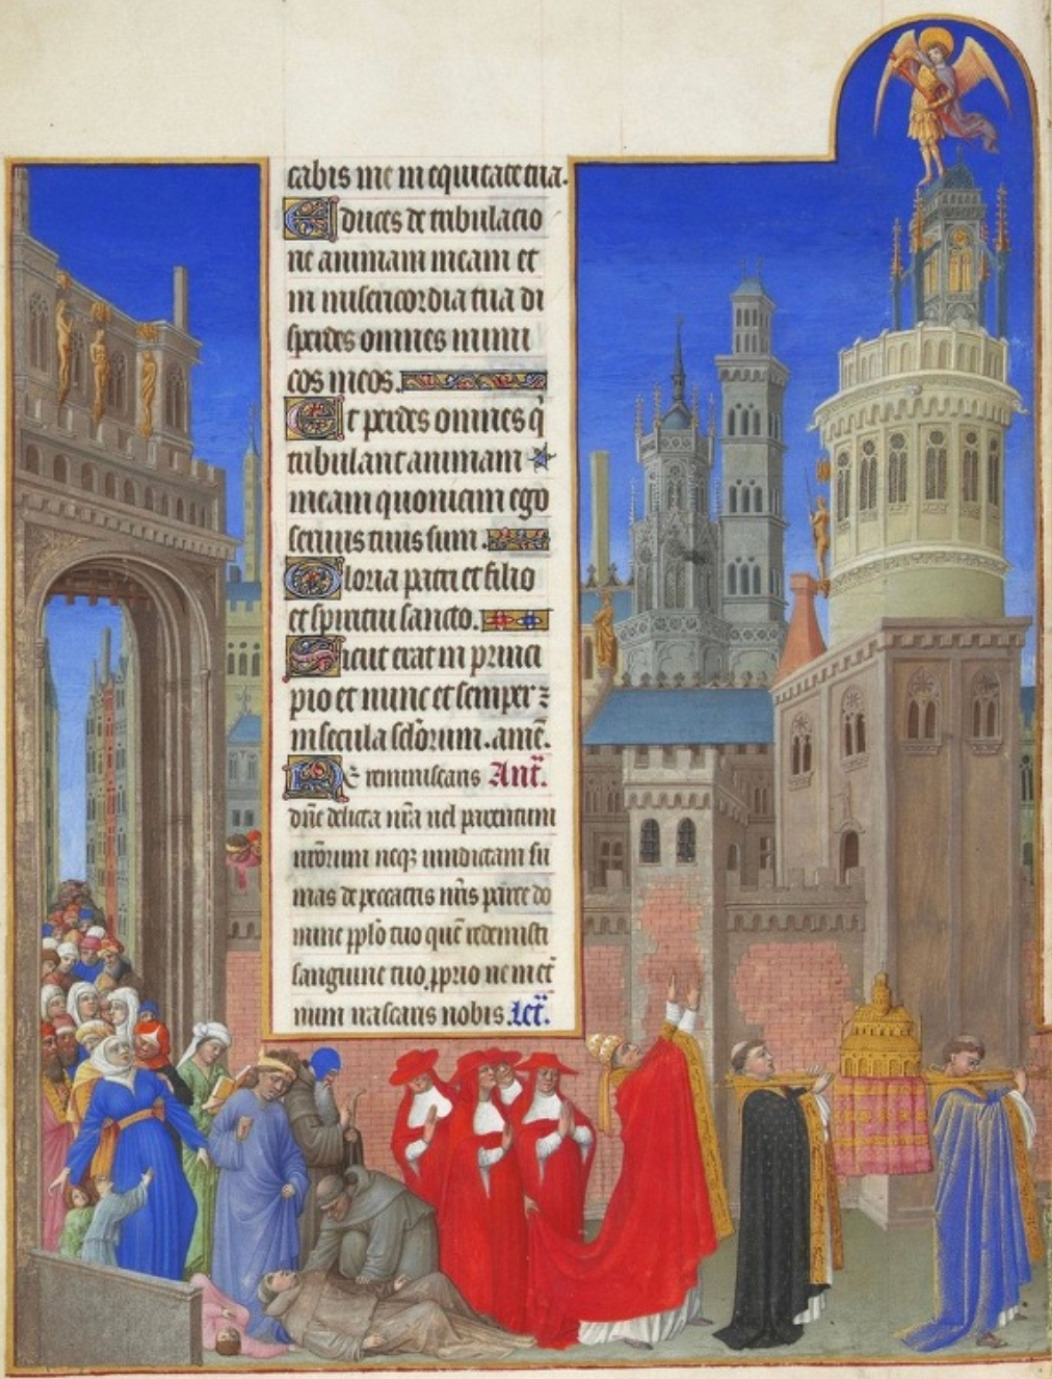 cabis me in equitate tua.
Educes de tribulacio
ne animam meam et
in misericordia tua di
sperdes omnes inimi
cos meos.
Et perdes omnes q̄
tribulant animam
meam quoniam ego
servus tuus sum.
Gloria patri et filio
et spiritui sancto.
Sicut erat in princi
pio et nunc et semper ⁊
in secula sc̄lorum. amē.
Ne reminiscaris Ant̄.
dn̄e delicta nr̄a vel parentum
nr̄orum neqꝫ vindictam su
mas de peccatis nr̄is parce do
mine ppl̄o tuo quē redemisti
sanguine tuo ꝓprio ne in et̄
num irascaris nobis. let̄.